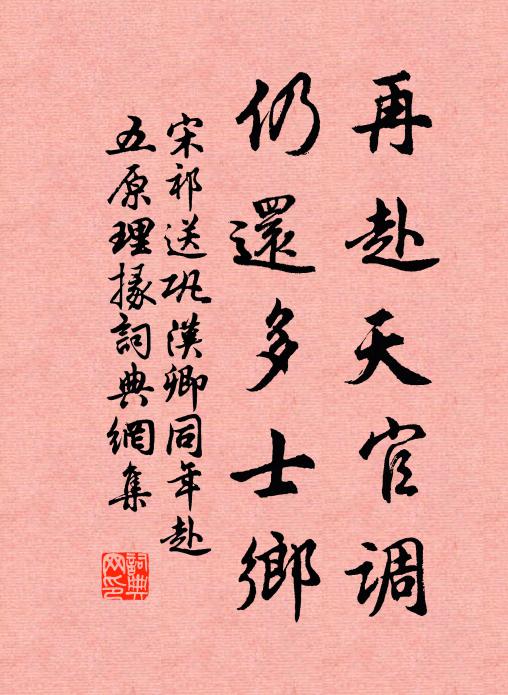 再赴天官调
仍還多士鄉
宋祁送巩漢卿同年赴
五原理掾詞典網集
詞典网印